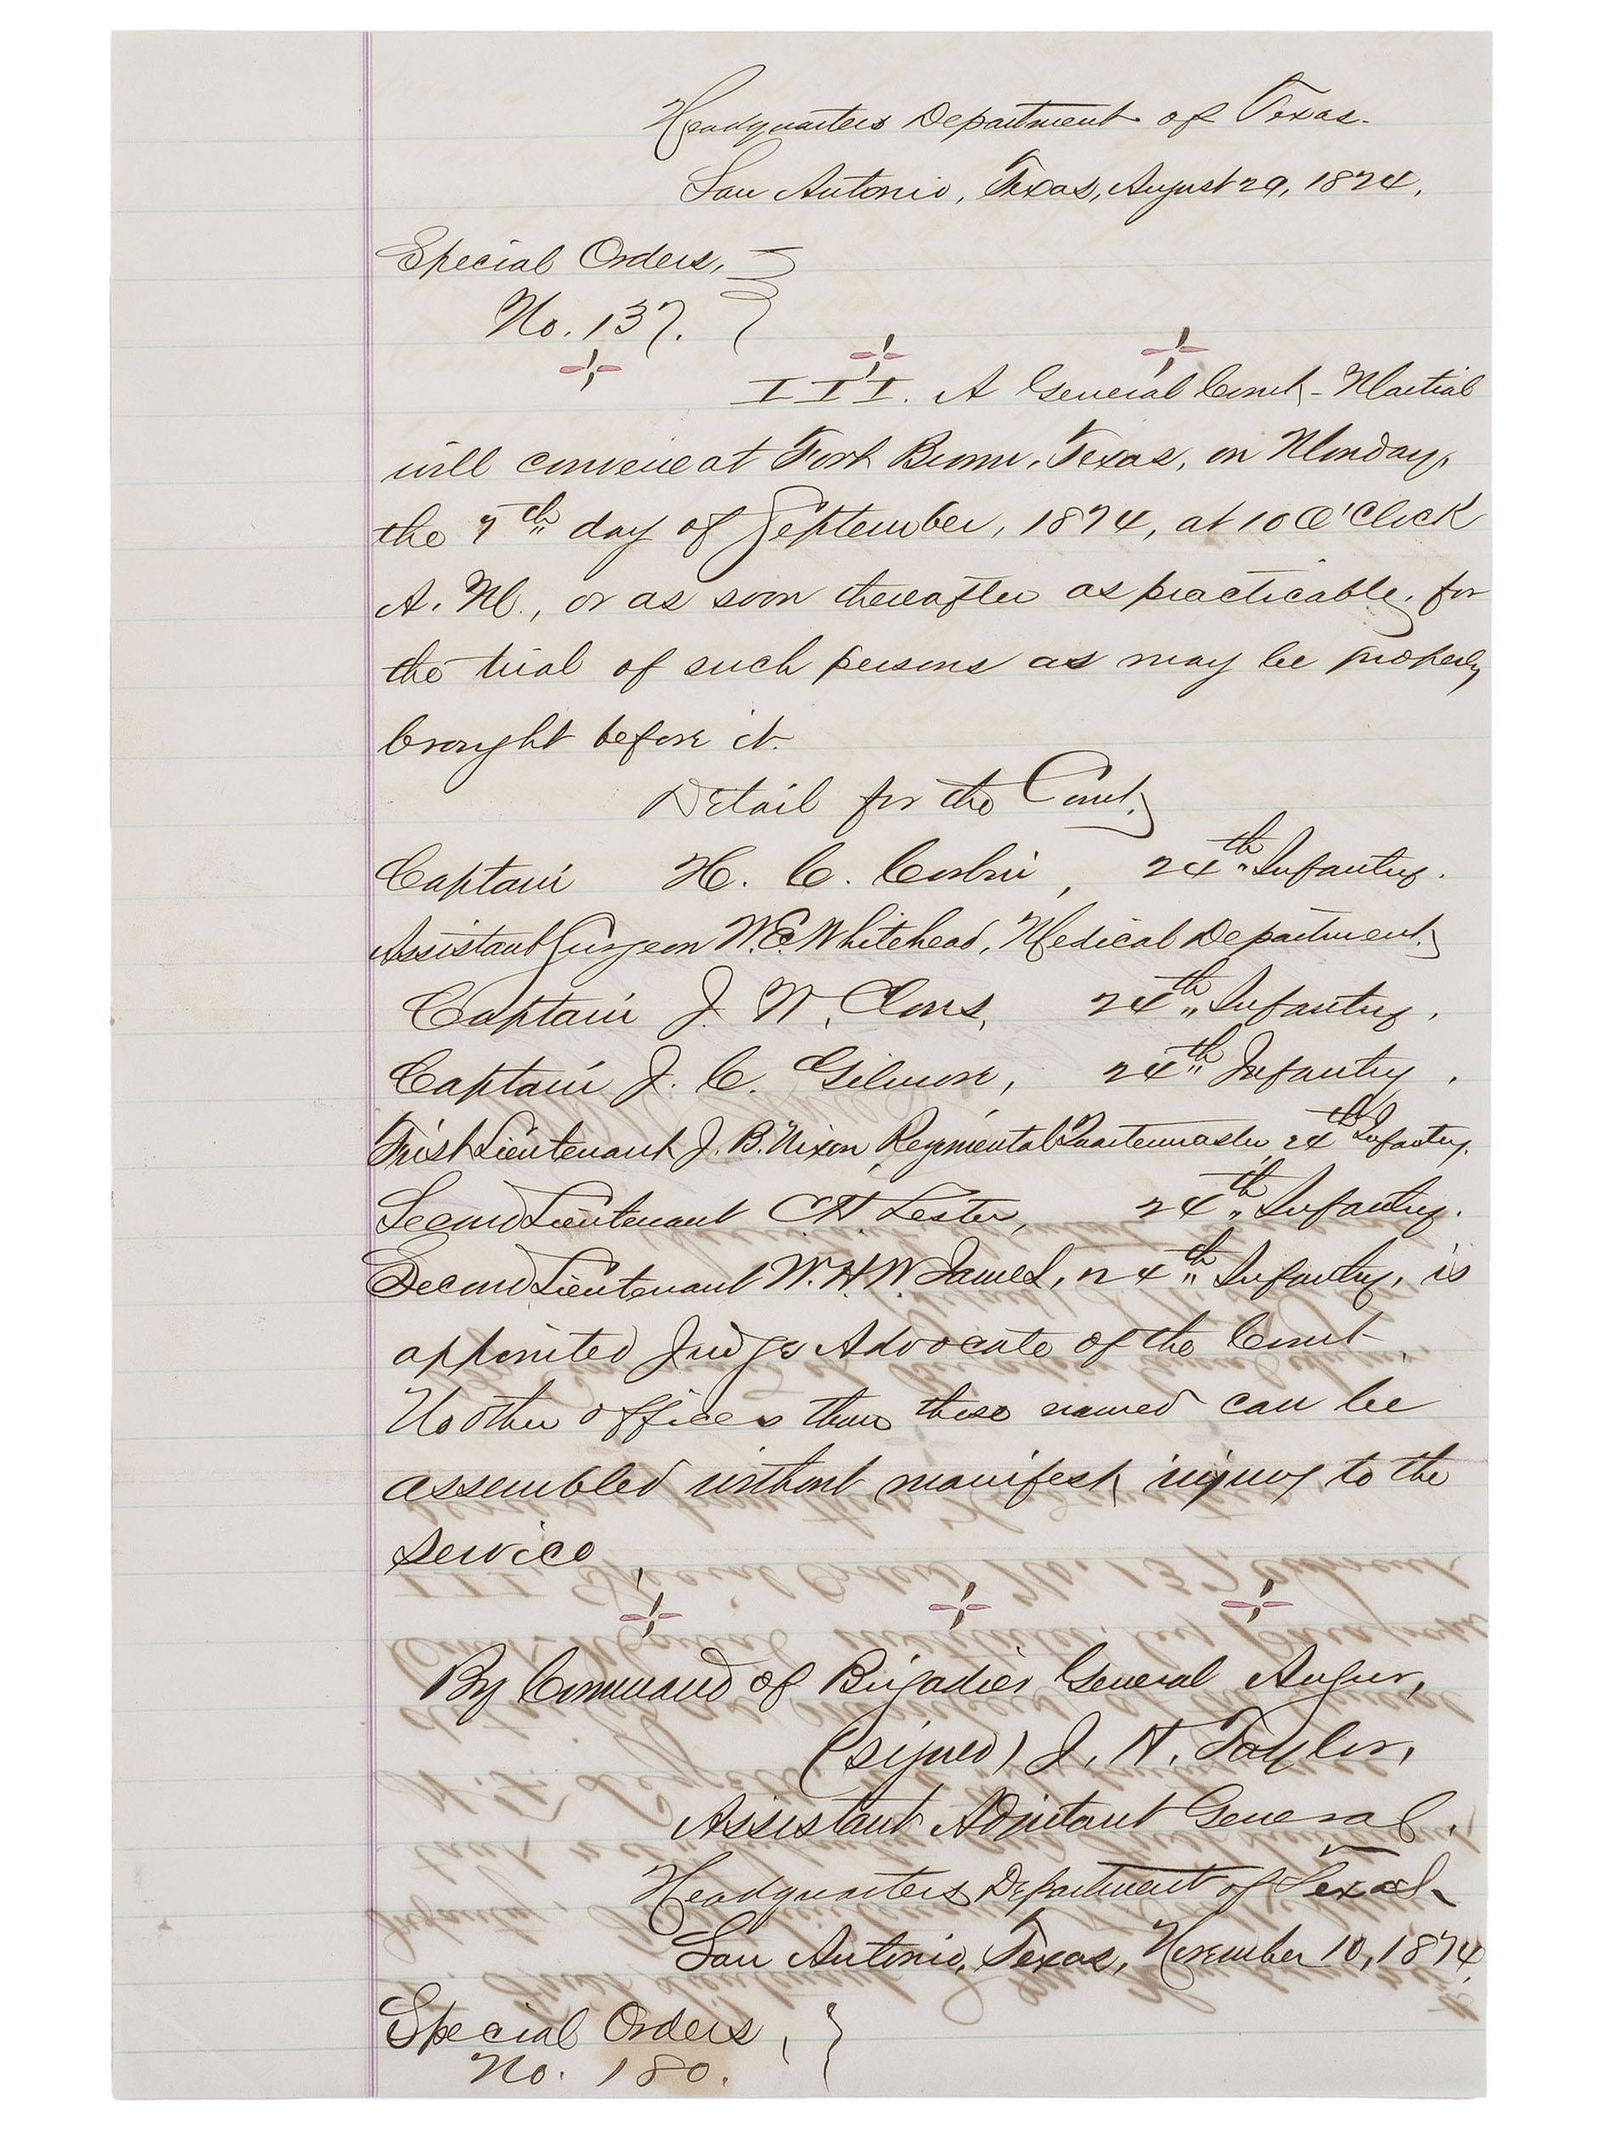 Headquarters Department of Texas.
San Antonio, Texas, August 29, 1874,
Special Orders,
No. 137.
III. A General Court-Martial
will convene at Fort Brown, Texas, on Monday,
the 7th day of September, 1874, at 10 O'Clock
A. M., or as soon thereafter as practicable, for
the trial of such persons as may be properly
brought before it.
Detail for the Court.
Captain H. C. Corbin, 24th Infantry.
Assistant Surgeon W. E. Whitehead, Medical Department.
Captain J. W. Clous, 24th Infantry.
Captain J. C. Gilmore, 24th Infantry.
First Lieutenant J. B. Nixon, Regimental Quartermaster, 24th Infantry.
Second Lieutenant C H. Lester, 24th Infantry.
Second Lieutenant W. H. W. James, 24th Infantry, is
appointed Judge Advocate of the Court.
No other officers than those named can be
assembled without manifest injury to the
service.
By Command of Brigadier General Augur,
(signed) J. H. Taylor,
Assistant Adjutant General.
Headquarters Department of Texas.
San Antonio, Texas, November 10, 1874.
Special Orders,
No. 180.